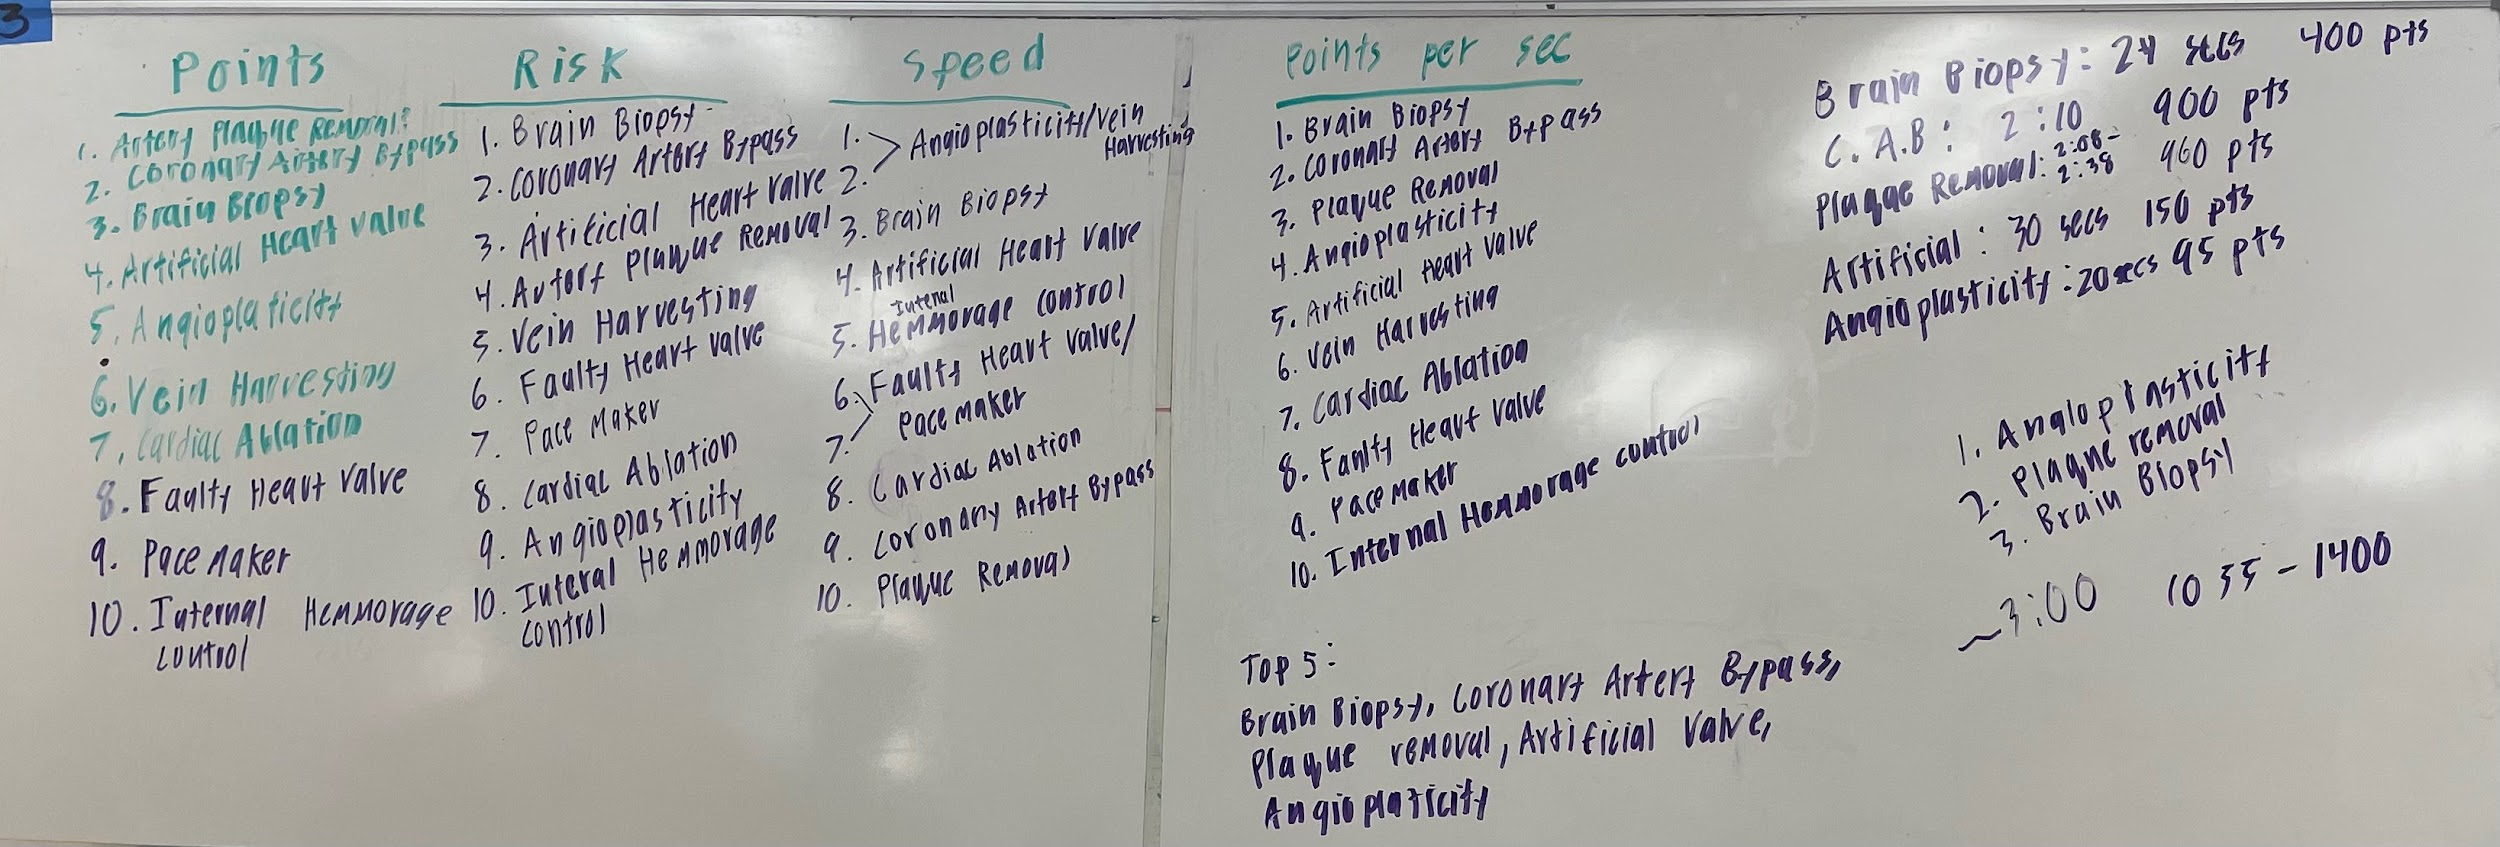 3
Points
1. Artery Plaque Removal:
2. Coronary Artery Bypass
3. Brain Biopsy
4. Artificial Heart Valve
5. Angioplaticity
6. Vein Harvesting
7. Cardiac Ablation
8. Faulty Heart Valve
9. Pace Maker
10. Internal Hemmorage
Control
Risk
1. Brain Biopsy
2. Coronary Artery Bypass
3. Artificial Heart Valve
4. Artery Plaque Removal
5. Vein Harvesting
6. Faulty Heart Valve
7. Pace Maker
8. Cardiac Ablation
9. Angioplasticity
10. Interal Hemmorage
Control
Speed
1. > Angioplasticity/Vein
Harvesting
2.
3. Brain Biopsy
4. Artificial Heart Valve
Intenal
5. Hemmorage Control
6. Faulty Heart Valve/
7. Pace maker
8. Cardiac Ablation
9. Coronary Artery Bypass
10. Plaque Removal
Points per sec
1. Brain Biopsy
2. Coronary Artery Bypass
3. Plaque Removal
4. Angioplasticity
5. Artificial Heart Valve
6. Vein Harvesting
7. Cardiac Ablation
8. Faulty Heart Valve
9. Pace Maker
10. Internal Hemmorage Control
Top 5:
Brain Biopsy, Coronary Artery Bypass,
Plaque removal, Artificial Valve,
Angioplaticity
Brain Biopsy: 24 secs 400 pts
C.A.B: 2:10 900 pts
Plaque Removal: 2:08- 2:38 960 pts
Artificial: 30 secs 150 pts
Angioplasticity: 20secs 95 pts
1. Angioplasticity
2. Plaque removal
3. Brain Biopsy
~3:00 1055-1400